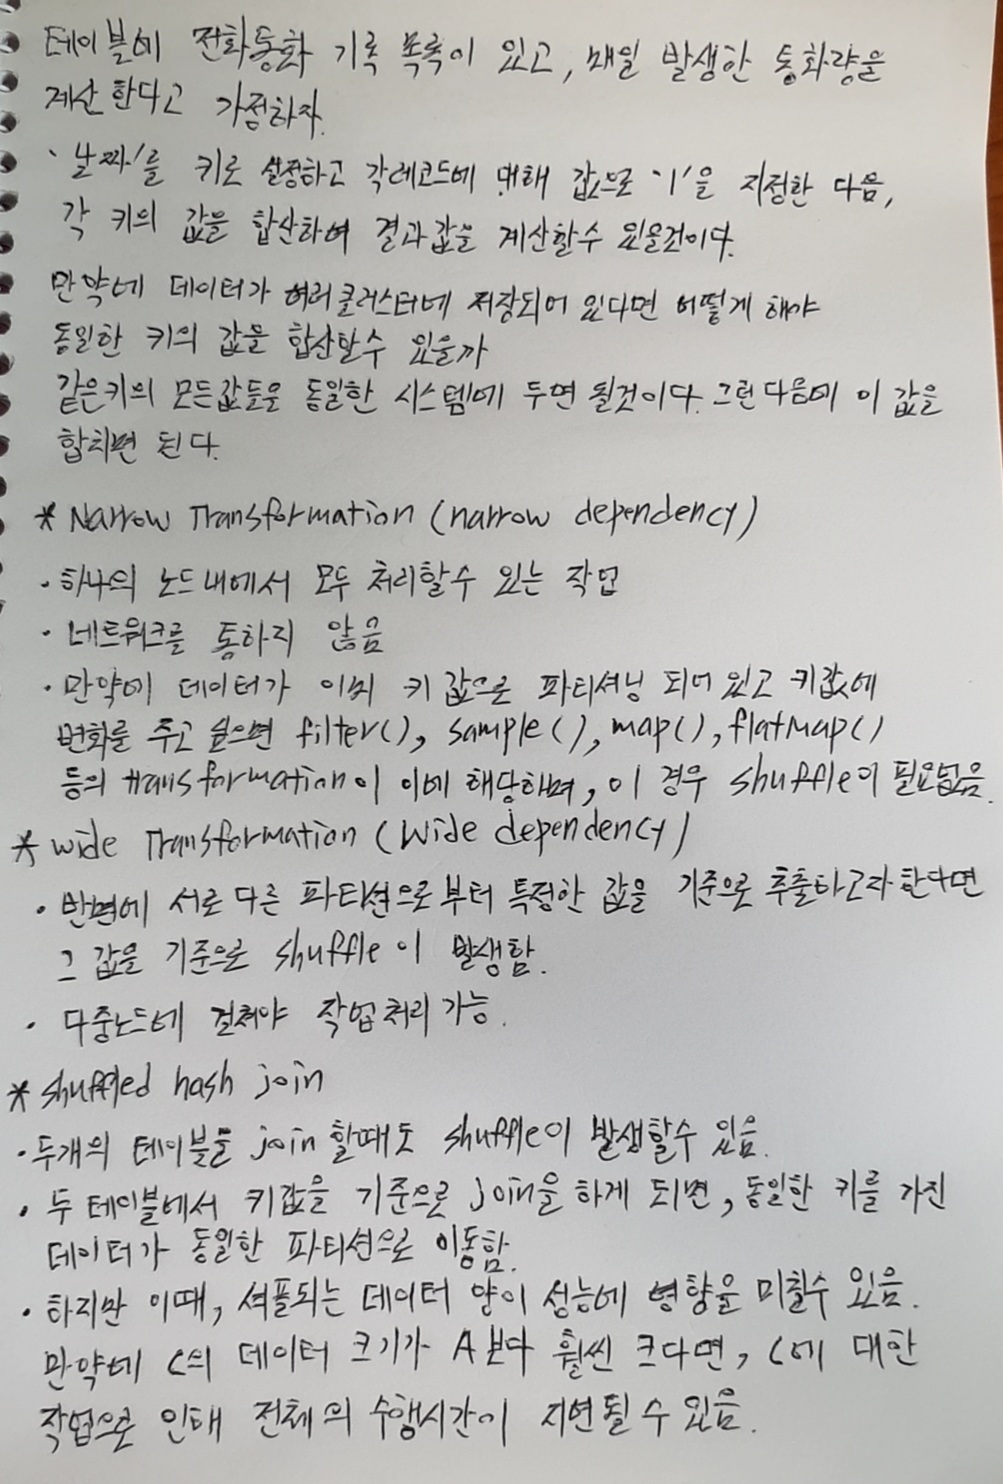 테이블에 전화통화 기록 목록이 있고, 매일 발생한 통화량을
계산한다고 가정하자.
'날짜'를 키로 설정하고 각레코드에 대해 값으로 '1'을 지정한 다음,
각 키의 값을 합산하여 결과값을 계산할수 있을것이다.
만약에 데이터가 여러클러스터에 저장되어 있다면 어떻게 해야
동일한 키의 값을 합산할수 있을까
같은키의 모든값들을 동일한 시스템에 두면 될것이다. 그런 다음에 이 값을
합치면 된다.
* Narrow Transformation (narrow dependency)
· 하나의 노드내에서 모두 처리할수 있는 작업
· 네트워크를 통하지 않음
· 만약에 데이터가 이미 키 값으로 파티셔닝 되어 있고 키값에
변화를 주고 싶으면 filter(), sample(), map(), flatMap()
등의 transformation이 이에 해당하며, 이 경우 shuffle이 필요없음.
* Wide Transformation (Wide dependency)
· 반면에 서로 다른 파티션으로부터 특정한 값을 기준으로 추출하고자 한다면
그 값을 기준으로 shuffle이 발생함.
· 다중노드에 걸쳐야 작업처리 가능.
* shuffled hash join
· 두개의 테이블을 join 할때도 shuffle이 발생할수 있음.
· 두 테이블에서 키값을 기준으로 join을 하게 되면, 동일한 키를 가진
데이터가 동일한 파티션으로 이동함.
· 하지만 이때, 셔플되는 데이터 양이 성능에 영향을 미칠수 있음.
만약에 C의 데이터 크기가 A보다 훨씬 크다면, C에 대한
작업으로 인해 전체의 수행시간이 지연될 수 있음.